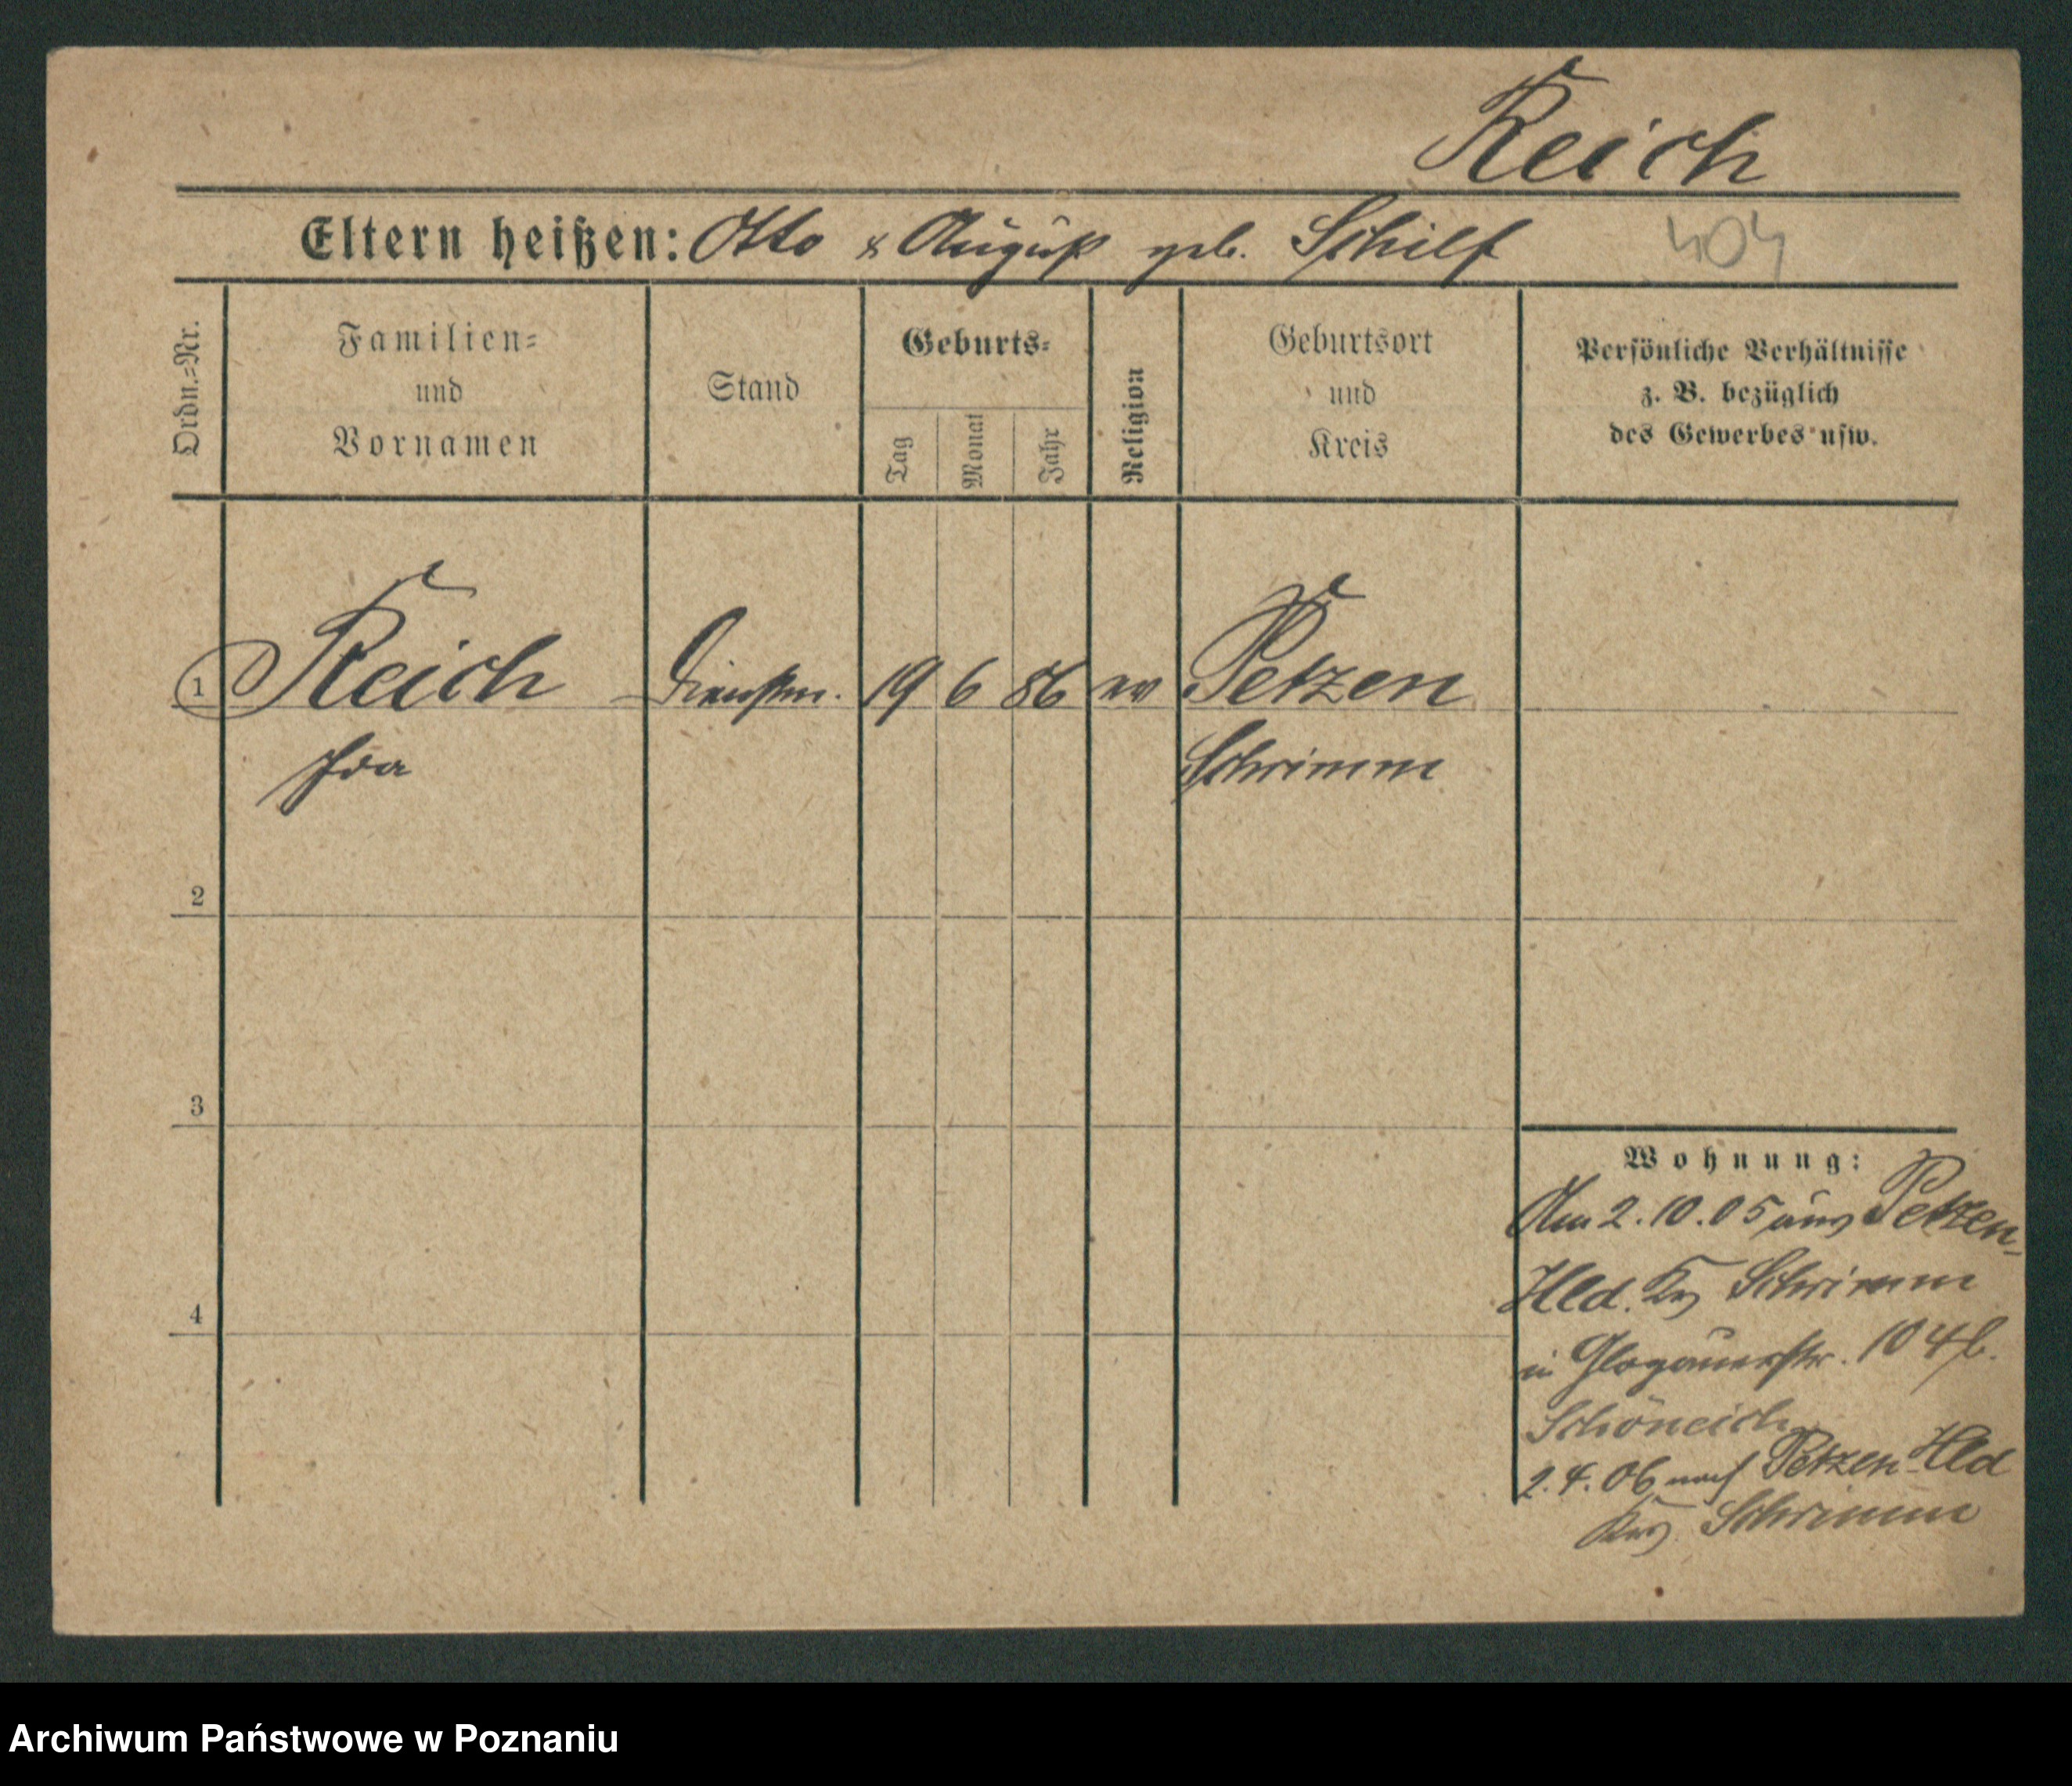 Reich
Eltern heißen: Otto & August geb. Schilf
404
Ordn.=Nr.
Familien=
und
Vornamen
Stand
Geburts=
Tag
Monat
Jahr
Religion
Geburtsort
und
Kreis
Persönliche Verhältnisse
z. B. bezüglich
des Gewerbes usw.
1 Reich Dienstm. 19 6 86 ev Petzen
Ida Schrimm
2
3
4
Wohnung:
Am 2.10.05 aus Petzen-
Hld. Krs Schrimm
in Glogauerstr. 104 b.
Schöneich
2.4.06 nach Petzen-Hld
Krs. Schrimm
Archiwum Państwowe w Poznaniu